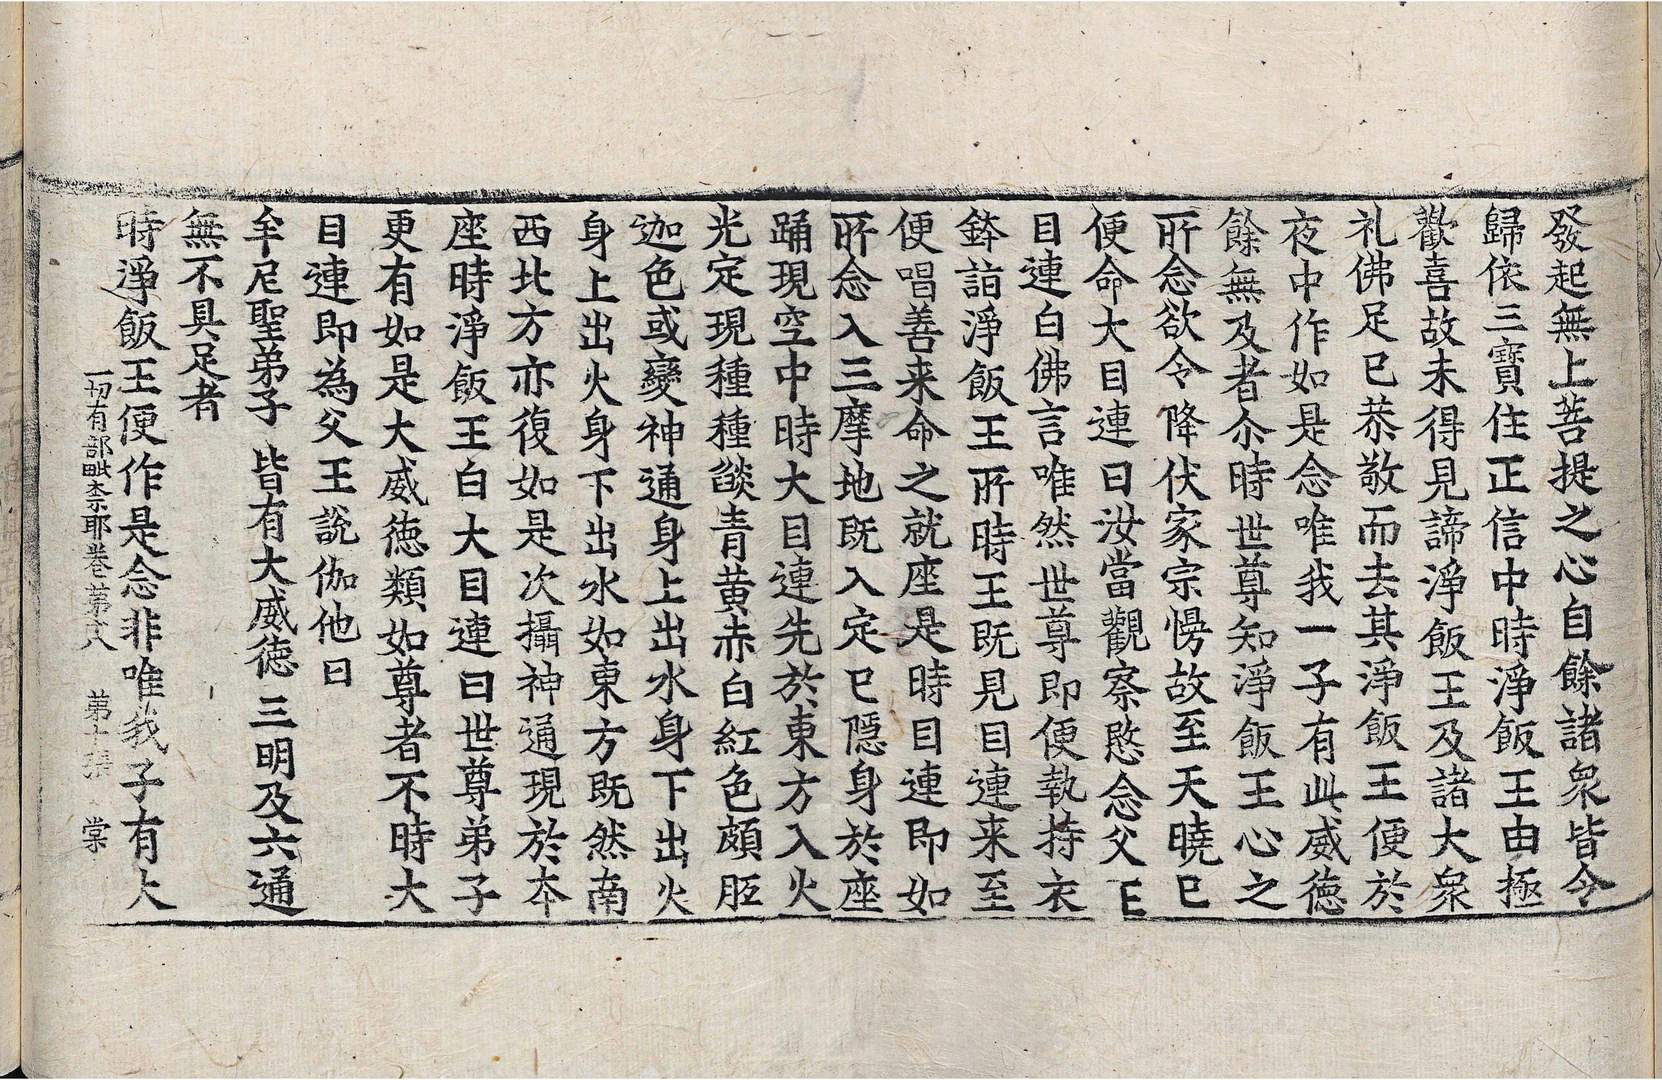 發起無上菩提之心自餘諸衆皆令
歸依三寶住正信中時淨飯王由極
歡喜故未得見諦淨飯王及諸大衆
礼佛足已恭敬而去其淨飯王便於
夜中作如是念唯我一子有此威德
餘無及者尒時世尊知淨飯王心之
所念欲令降伏家宗慢故至天曉已
便命大目連曰汝當觀察愍念父王
目連白佛言唯然世尊即便執持衣
鉢詣淨飯王所時王既見目連来至
便唱善来命之就座是時目連即如
所念入三摩地既入定已隱身於座
踊現空中時大目連先於東方入火
光定現種種燄青黄赤白紅色頗胝
迦色或變神通身上出水身下出火
身上出火身下出水如東方既然南
西北方亦復如是次攝神通現於本
座時淨飯王白大目連曰世尊弟子
更有如是大威德類如尊者不時大
目連即為父王說伽他曰
牟尼聖弟子 皆有大威德 三明及六通
無不具足者
時淨飯王便作是念非唯我子有大
一切有部毗柰耶卷第十八 第十張 棠